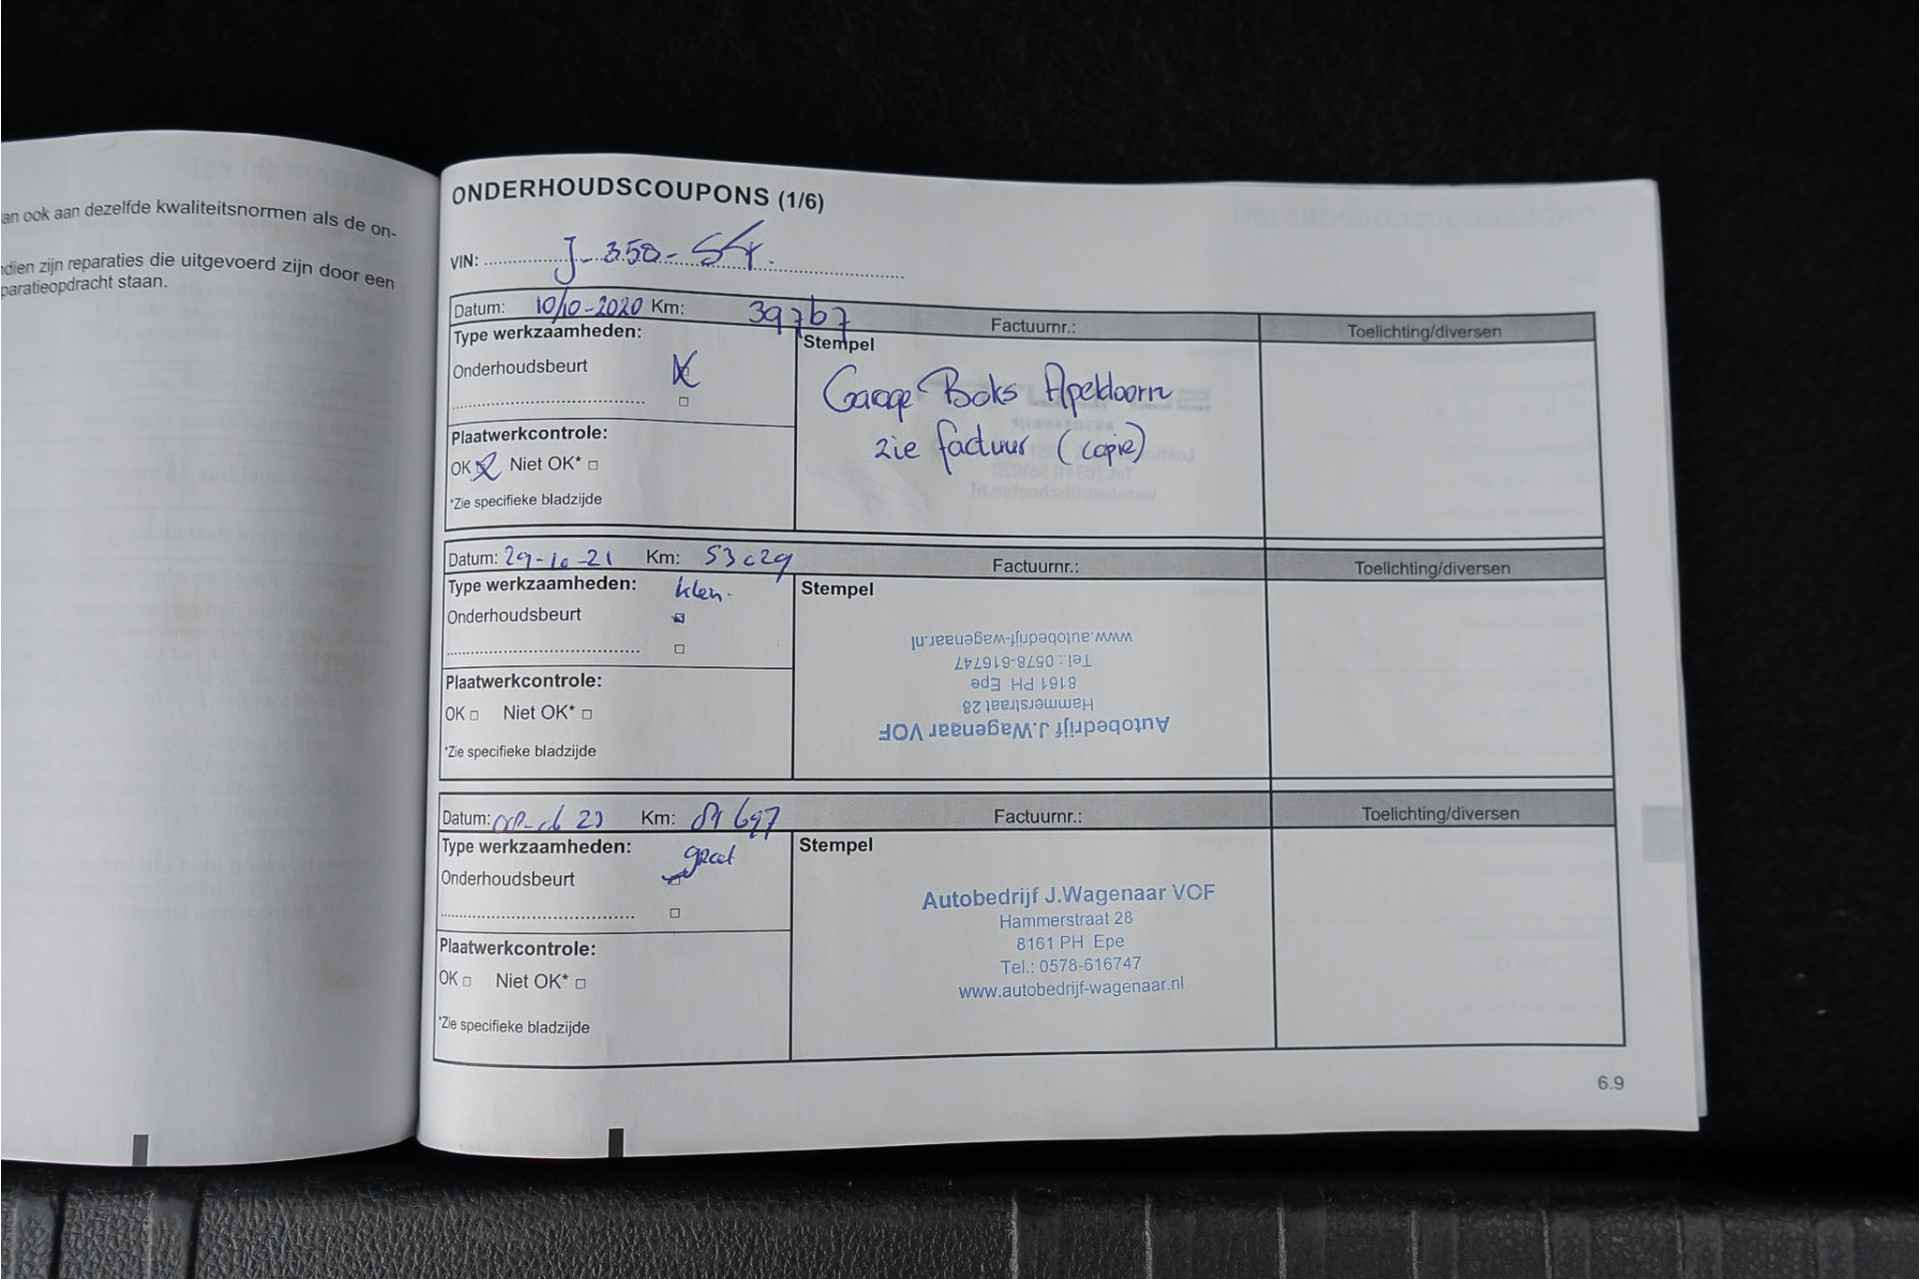 an ook aan dezelfde kwaliteitsnormen als de on-
dien zijn reparaties die uitgevoerd zijn door een
paratieopdracht staan.
ONDERHOUDSCOUPONS (1/6)
VIN: J-350-
Datum: 10/10-2020 Km: 39767 Factuurnr.: Toelichting/diversen
Type werkzaamheden:
Stempel
Onderhoudsbeurt
Garage Boks Apeldoorn
Plaatwerkcontrole:
zie factuur (copie)
OK Niet OK*
*Zie specifieke bladzijde
Datum: 29-10-21 Km: 53029 Factuurnr.: Toelichting/diversen
Type werkzaamheden: klein
Stempel
Onderhoudsbeurt
Autobedrijf J.Wagenaar VOF
Hammerstraat 28
8161 PH Epe
Tel.: 0578-616747
www.autobedrijf-wagenaar.nl
Plaatwerkcontrole:
OK Niet OK*
*Zie specifieke bladzijde
Datum: Km: Factuurnr.: Toelichting/diversen
Type werkzaamheden: groot
Stempel
Onderhoudsbeurt
Autobedrijf J.Wagenaar VOF
Hammerstraat 28
8161 PH Epe
Tel.: 0578-616747
www.autobedrijf-wagenaar.nl
Plaatwerkcontrole:
OK Niet OK*
*Zie specifieke bladzijde
6.9